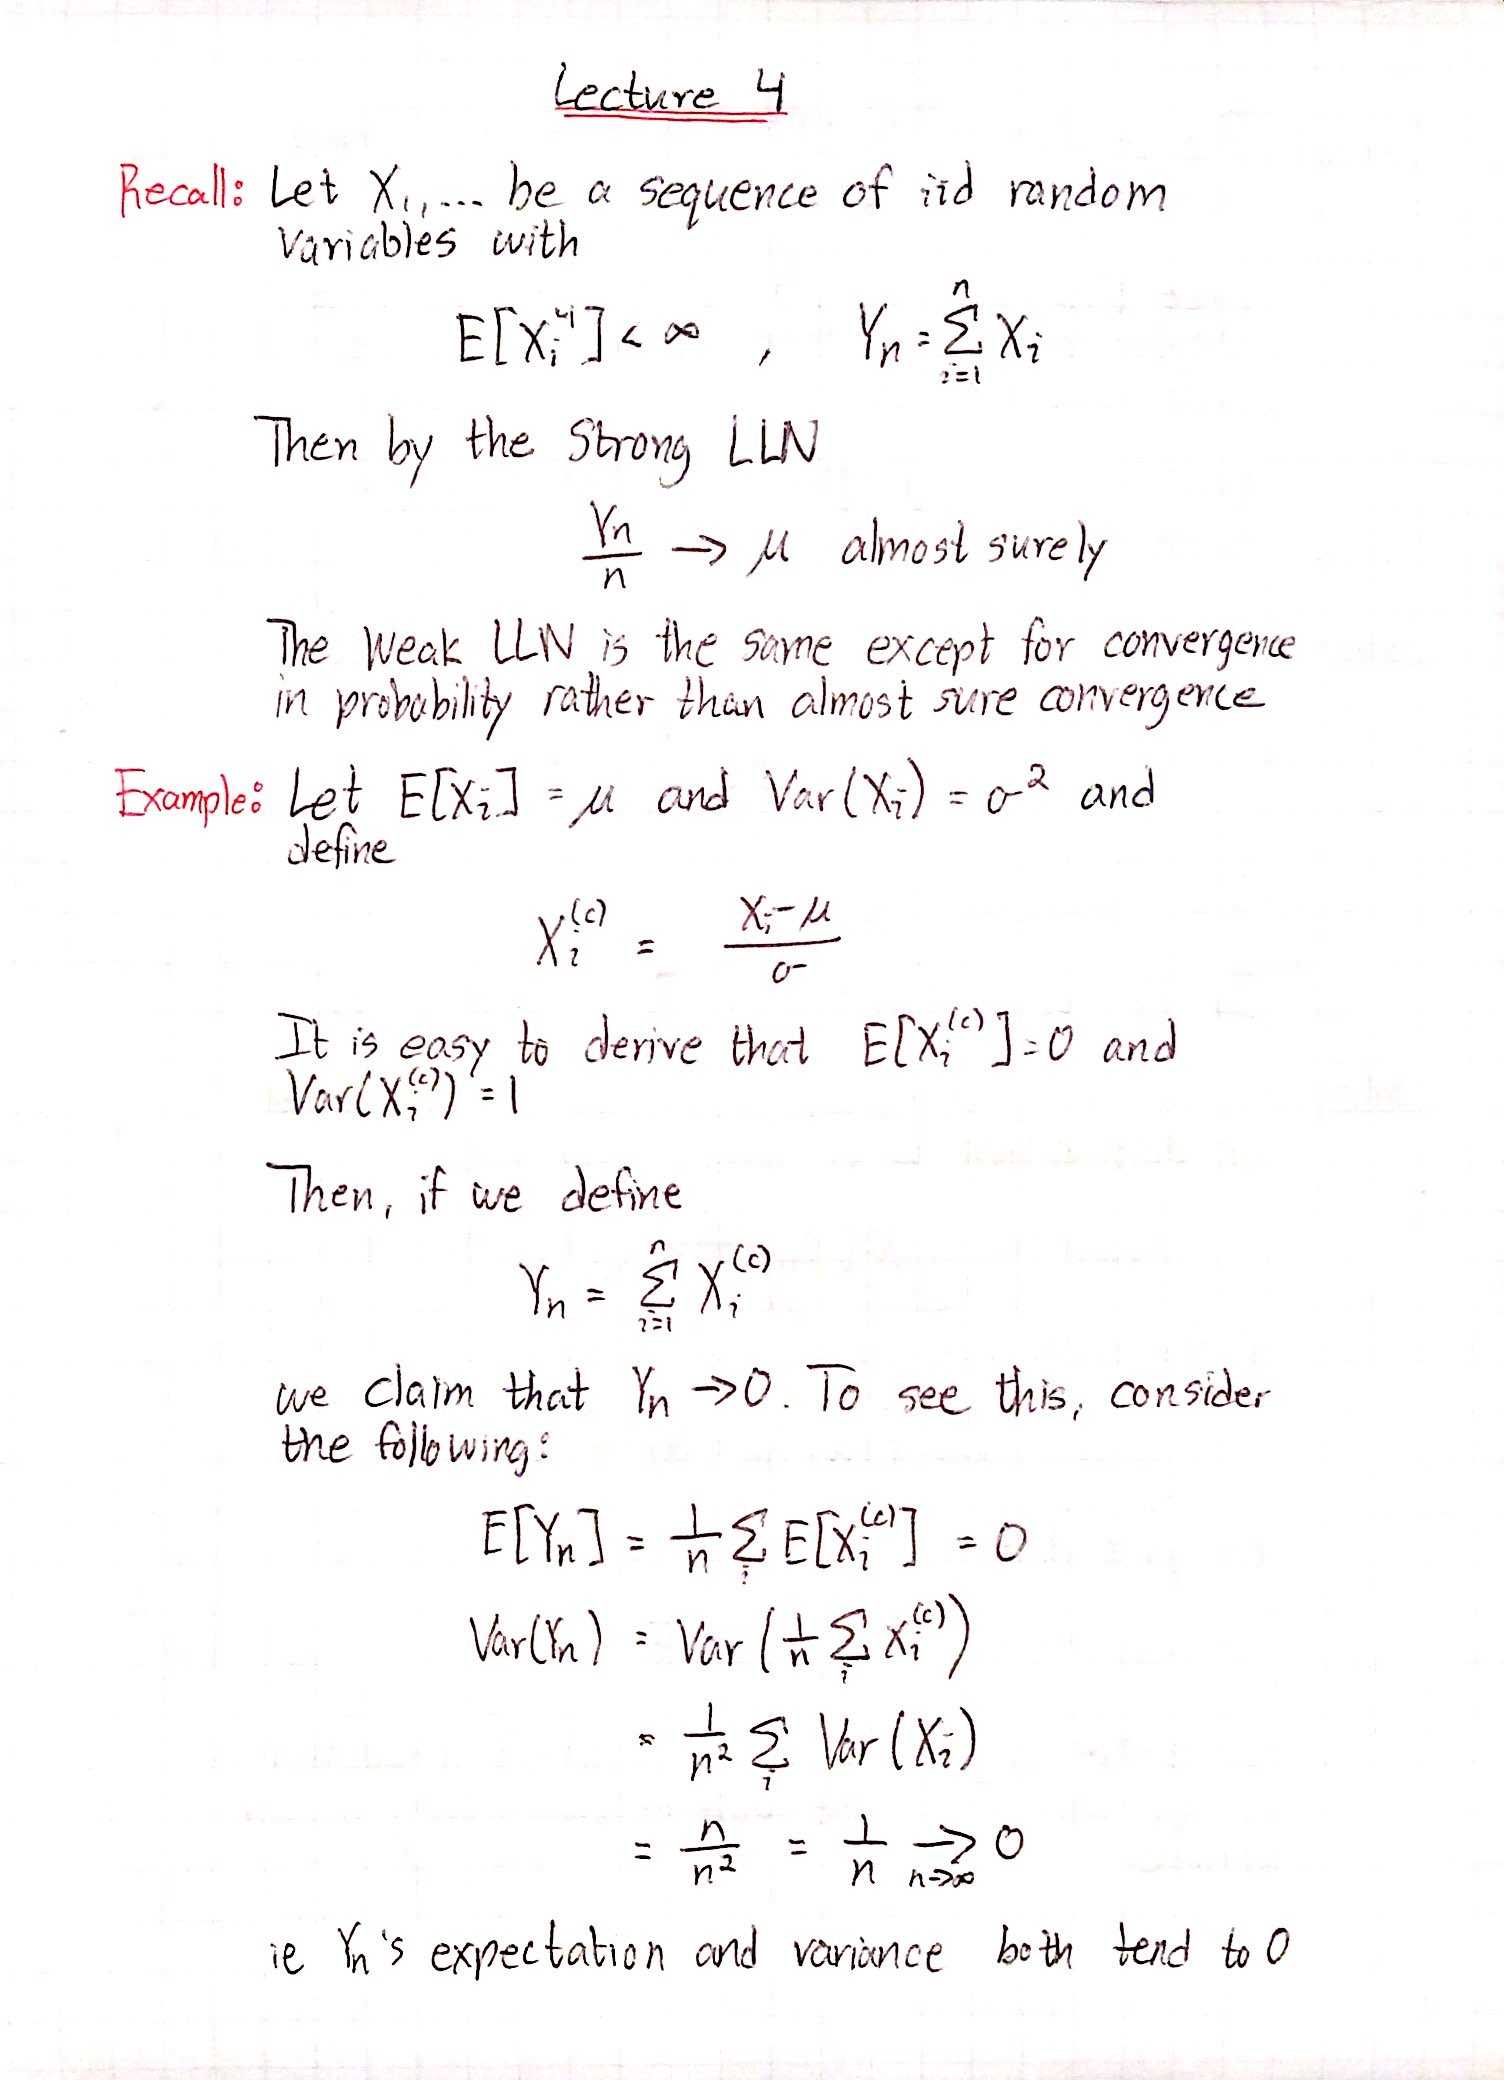 Lecture 4
Recall: Let X₁,... be a sequence of iid random
variables with
E[Xᵢ⁴] < ∞ , Yₙ = Σᵢ₌₁ⁿ Xᵢ
Then by the Strong LLN
Yₙ/n → μ almost surely
The Weak LLN is the same except for convergence
in probability rather than almost sure convergence
Example: Let E[Xᵢ] = μ and Var(Xᵢ) = σ² and
define
Xᵢ⁽ᶜ⁾ = (Xᵢ-μ)/σ
It is easy to derive that E[Xᵢ⁽ᶜ⁾] = 0 and
Var(Xᵢ⁽ᶜ⁾) = 1
Then, if we define
Yₙ = Σᵢ₌₁ⁿ Xᵢ⁽ᶜ⁾
we claim that Yₙ → 0. To see this, consider
the following:
E[Yₙ] = 1/n Σᵢ E[Xᵢ⁽ᶜ⁾] = 0
Var(Yₙ) = Var(1/n Σᵢ Xᵢ⁽ᶜ⁾)
= 1/n² Σᵢ Var(Xᵢ)
= n/n² = 1/n → 0 n→∞
ie Yₙ's expectation and variance both tend to 0